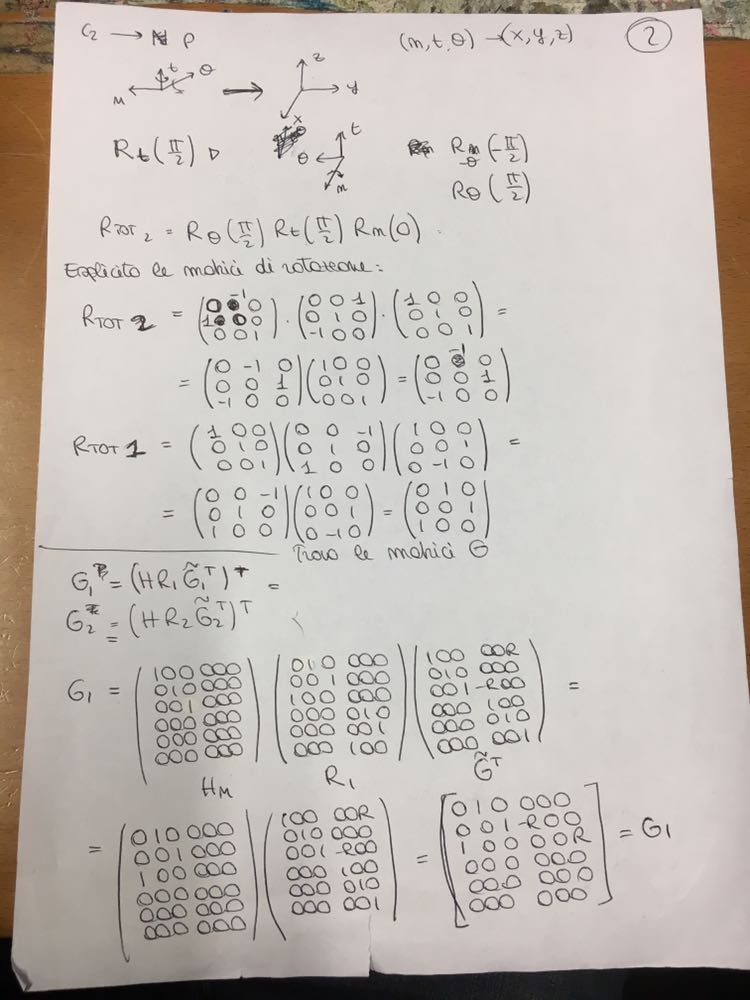 C₂ → P (m, t, θ) → (x, y, z) 2
m t θ → z y x
R_t(π/2) ▷ θ t m R_-θ(-π/2)
R_θ(π/2)
R_TOT 2 = R_θ(π/2) R_t(π/2) R_m(0).
Esplicito le matrici di rotazione:
R_TOT 2 = (0 -1 0; 1 0 0; 0 0 1) · (0 0 1; 0 1 0; -1 0 0) · (1 0 0; 0 1 0; 0 0 1) =
= (0 -1 0; 0 0 1; -1 0 0) (1 0 0; 0 1 0; 0 0 1) = (0 -1 0; 0 0 1; -1 0 0)
R_TOT 1 = (1 0 0; 0 1 0; 0 0 1) (0 0 -1; 0 1 0; 1 0 0) (1 0 0; 0 0 1; 0 -1 0) =
= (0 0 -1; 0 1 0; 1 0 0) (1 0 0; 0 0 1; 0 -1 0) = (0 1 0; 0 0 1; 1 0 0)
Trovo le matrici G
G₁ = (H R₁ G̃₁ᵀ)ᵀ =
G₂ = (H R₂ G̃₂ᵀ)ᵀ
=
G₁ = (100 000; 010 000; 001 000; 000 000; 000 000; 000 000) (010 000; 001 000; 100 000; 000 010; 000 001; 000 100) (100 00R; 010 000; 001 -R00; 000 100; 000 010; 000 001) =
H_M R₁ G̃ᵀ
= (010 000; 001 000; 100 000; 000 000; 000 000; 000 000) (100 00R; 010 000; 001 -R00; 000 100; 000 010; 000 001) = [010 000; 001 -R00; 100 00R; 000 000; 000 000; 000 000] = G₁